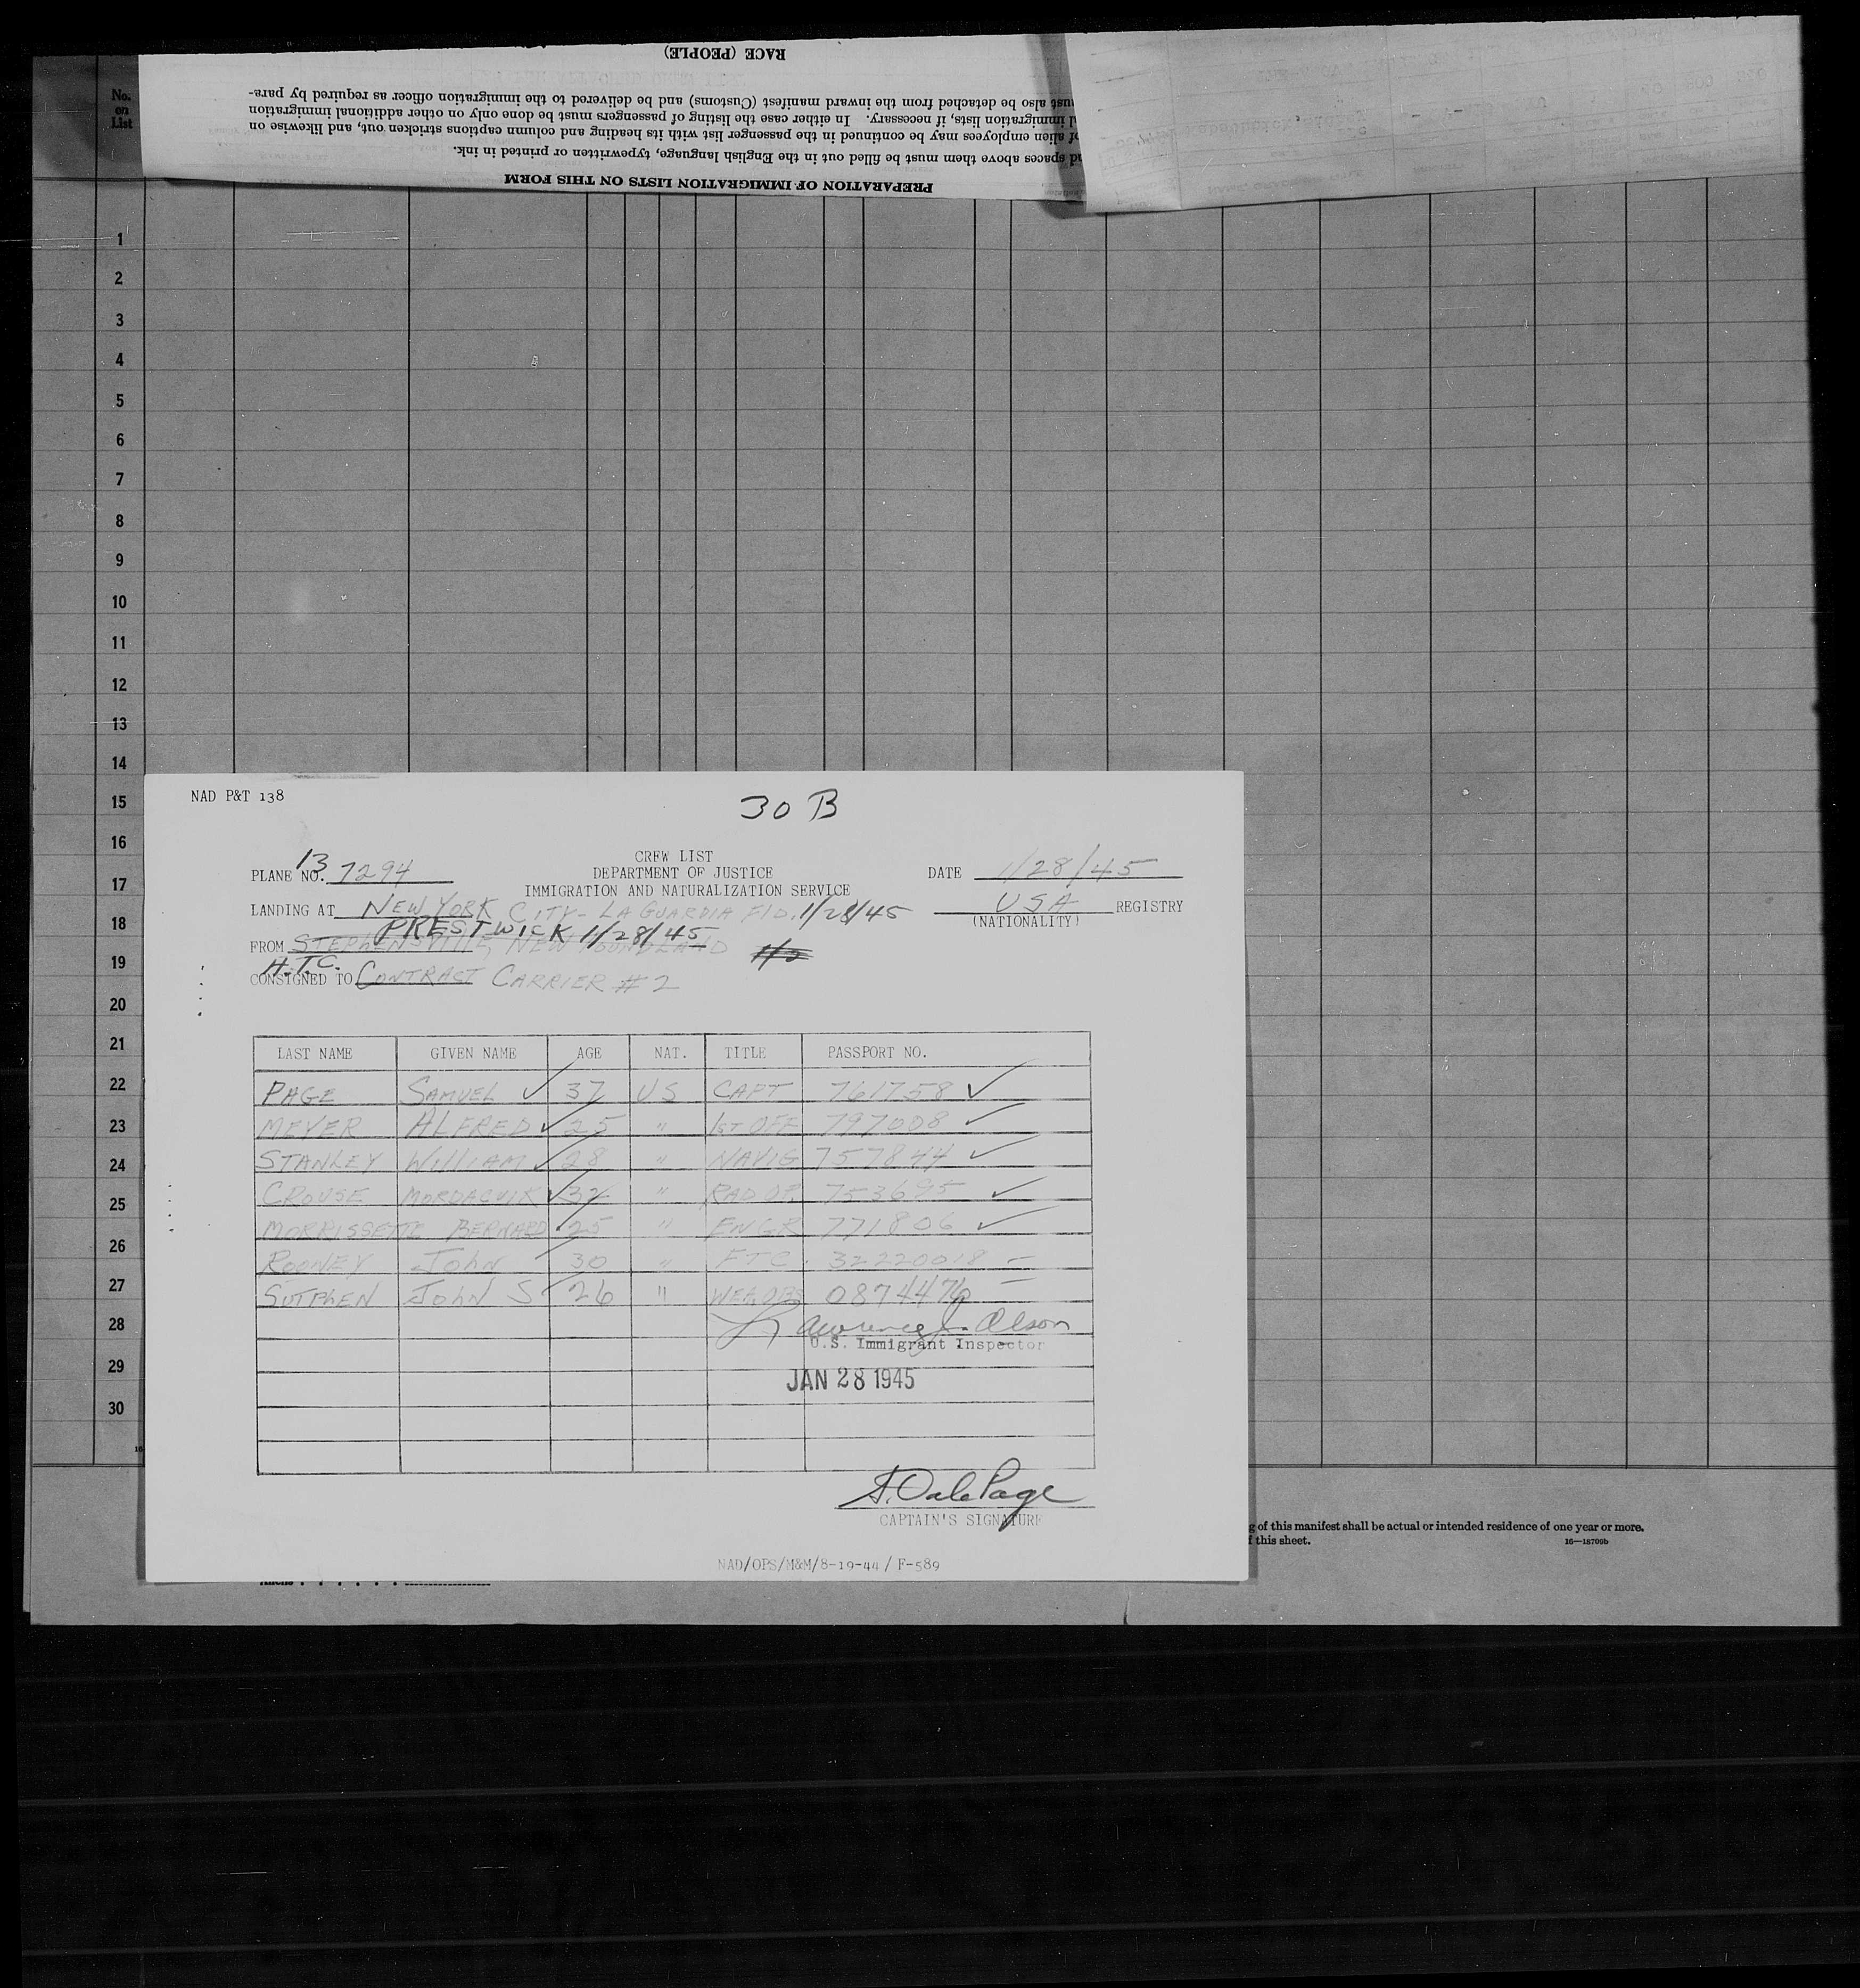 RACE (PEOPLE)
ust also be detached from the inward manifest (Customs) and be delivered to the immigration officer as required by para-
d immigration lists, if necessary. In either case the listing of passengers must be done only on other additional immigration
of alien employees may be continued in the passenger list with its heading and column captions stricken out, and likewise on
d spaces above them must be filled out in the English language, typewritten or printed in ink.
PREPARATION OF IMMIGRATION LISTS ON THIS FORM
No.
on
List
1
2
3
4
5
6
7
8
9
10
11
12
13
14
15
16
17
18
19
20
21
22
23
24
25
26
27
28
29
30
NAD P&T 138
30 B
CREW LIST
DEPARTMENT OF JUSTICE
IMMIGRATION AND NATURALIZATION SERVICE
13
PLANE NO. 7294
DATE 1/28/45
LANDING AT NEW YORK CITY - LA GUARDIA FLD. 1/28/45
USA REGISTRY
(NATIONALITY)
PRESTWICK 1/28/45
FROM STEPHENSVILLE, NEWFOUNDLAND
H.T.C.
CONSIGNED TO CONTRACT CARRIER # 2
LAST NAME GIVEN NAME AGE NAT. TITLE PASSPORT NO.
PAGE SAMUEL ✓ 37 US CAPT 761758 ✓
MEYER ALFRED ✓ 25 " 1ST OFF 797008 ✓
STANLEY WILLIAM ✓ 28 " NAVIG 757844 ✓
CROUSE ✓ 32 " RAD OP. 753695 ✓
MORRISSETTE BERNARD ✓ 25 " ENGR 771806 ✓
ROONEY JOHN 30 " FTC. 32220018 -
SUTPHEN JOHN S 26 " WEA.OBS 0874476 -
Lawrence J. Olson
U.S. Immigrant Inspector
JAN 28 1945
S. Dale Page
CAPTAIN'S SIGNATURE
NAD/OPS/M&M/8-19-44 / F-589
g of this manifest shall be actual or intended residence of one year or more.
f this sheet.
16—18709b